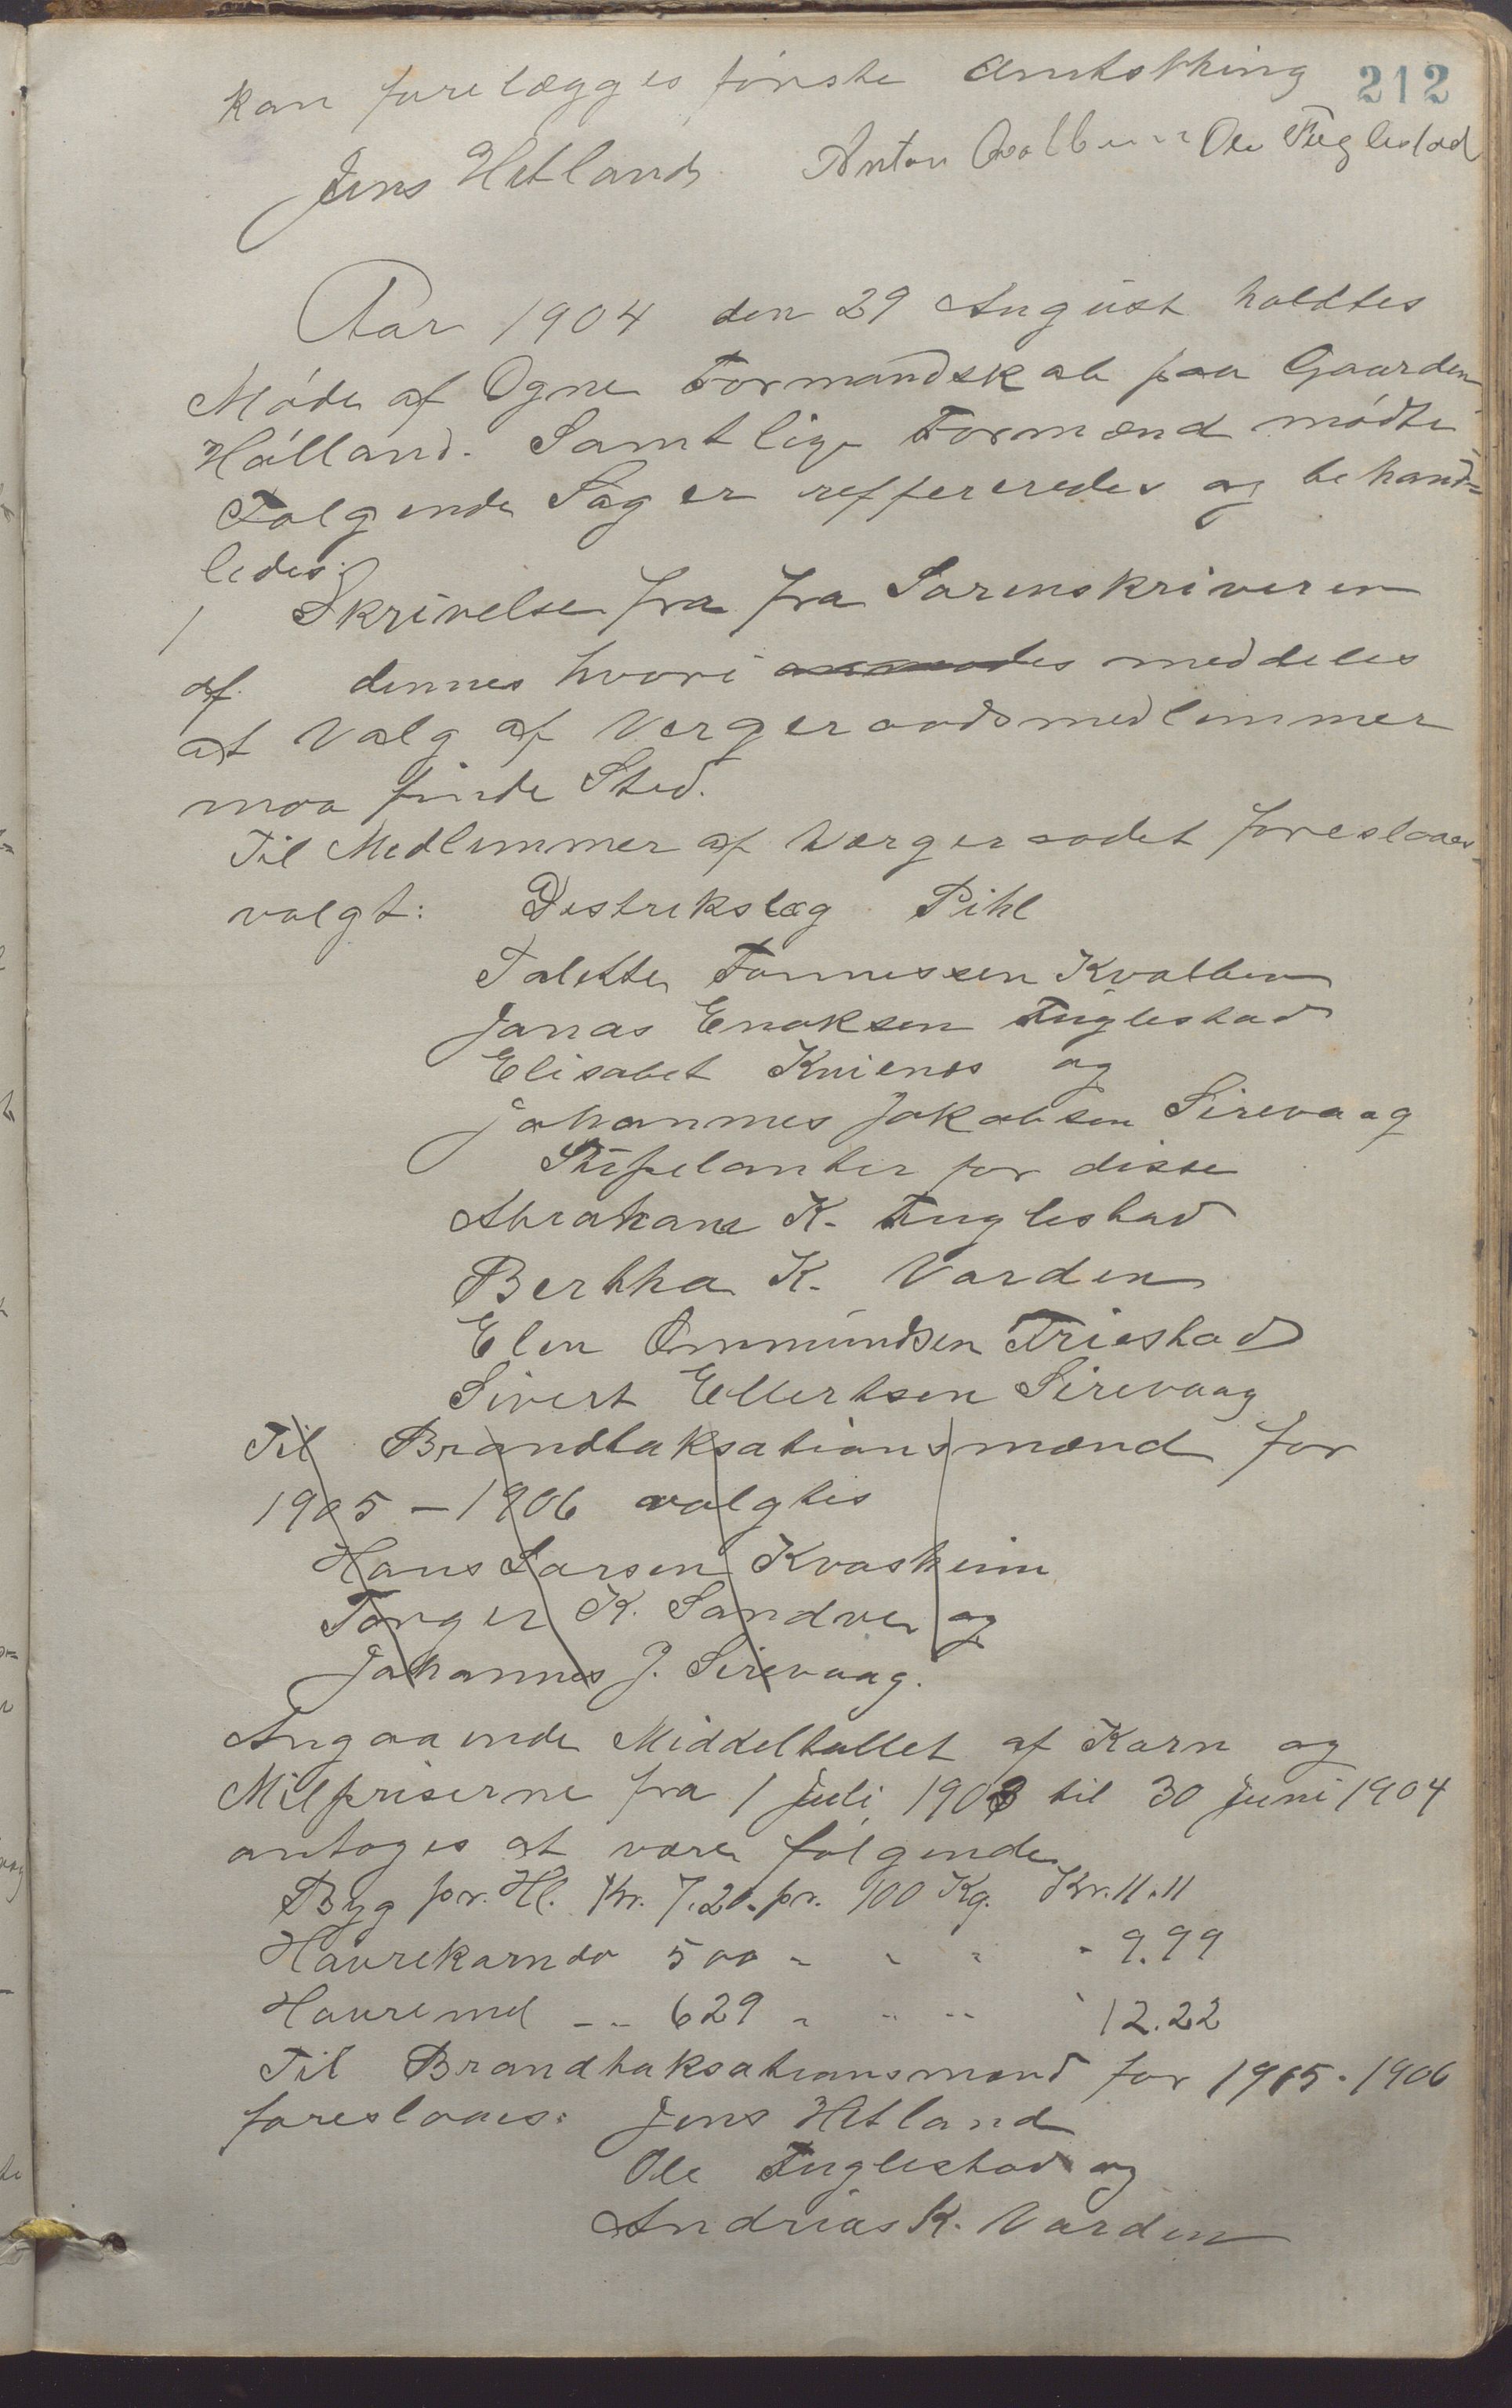 212
kan forelægges første Amtsthing
Jens Hetland Anton Ole Fuglestad
Aar 1904 den 29 August holdtes
Møde af Ogne Formandskab paa Gaarden
Hølland. Samtlige Formænd mødte
Følgende Sager reffereredes og behand=
ledes:
1 Skrivelse fra fra Sorenskriveren
af dennes hvori meddeles
at Valg af Vergeraadsmedlemmer
maa finde Sted.
Til Medlemmer af Vergeraadet foreslaaes
valgt: Destrekslæg Pihl
Talette Tønnessen Kvalben
Jonas Enoksen Fuglestad
Elisabet og
Johannes Jakobsen Sirevaag
for disse
Abraham K. Fuglestad
Bertha K. Varden
Elen Ommundsen Friestad
Sivert Ellertsen Sirevaag
Til Brandtaksationsmænd for
1905-1906 valgtes
Hans Larsen Kvasheim
Torger K. Sandve og
Johannes J. Sirevaag.
Angaaende Middeltallet af Korn og
Melpriserne fra 1 Juli 1903 til 30 Juni 1904
antoges at være følgende
Byg pr. Hl. Kr. 7.20. pr. 100 Kg. Kr. 11.11
Havrekorn do 500 " " " " 9.99
Havremel - - 629 " " " " 12.22
Til Brandtaksationsmænd for 1905-1906
foreslaaes: Jens Hetland
Ole Fuglestad og
Andrias K. Varden